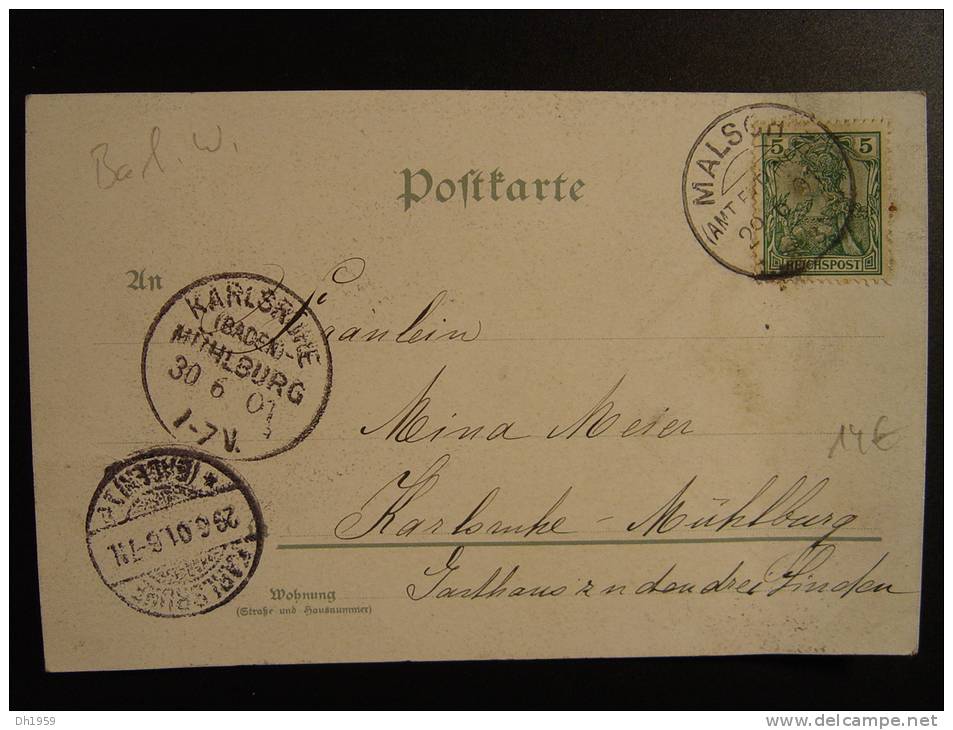 Bad. W.
Postkarte
MALSCH
(AMT ETTLINGEN)
5 5
REICHSPOST
An
KARLSRUHE
(BADEN)-
MÜHLBURG
30 6 01
1-7V.
Fräulein
Mina Meier
14€
Karlsruhe - Mühlburg
(BADEN)
29.6.01.6-7N.
KARLSRUHE
Gasthaus z den drei Linden
Wohnung
(Straße und Hausnummer)
Dh1959
delcampe.net